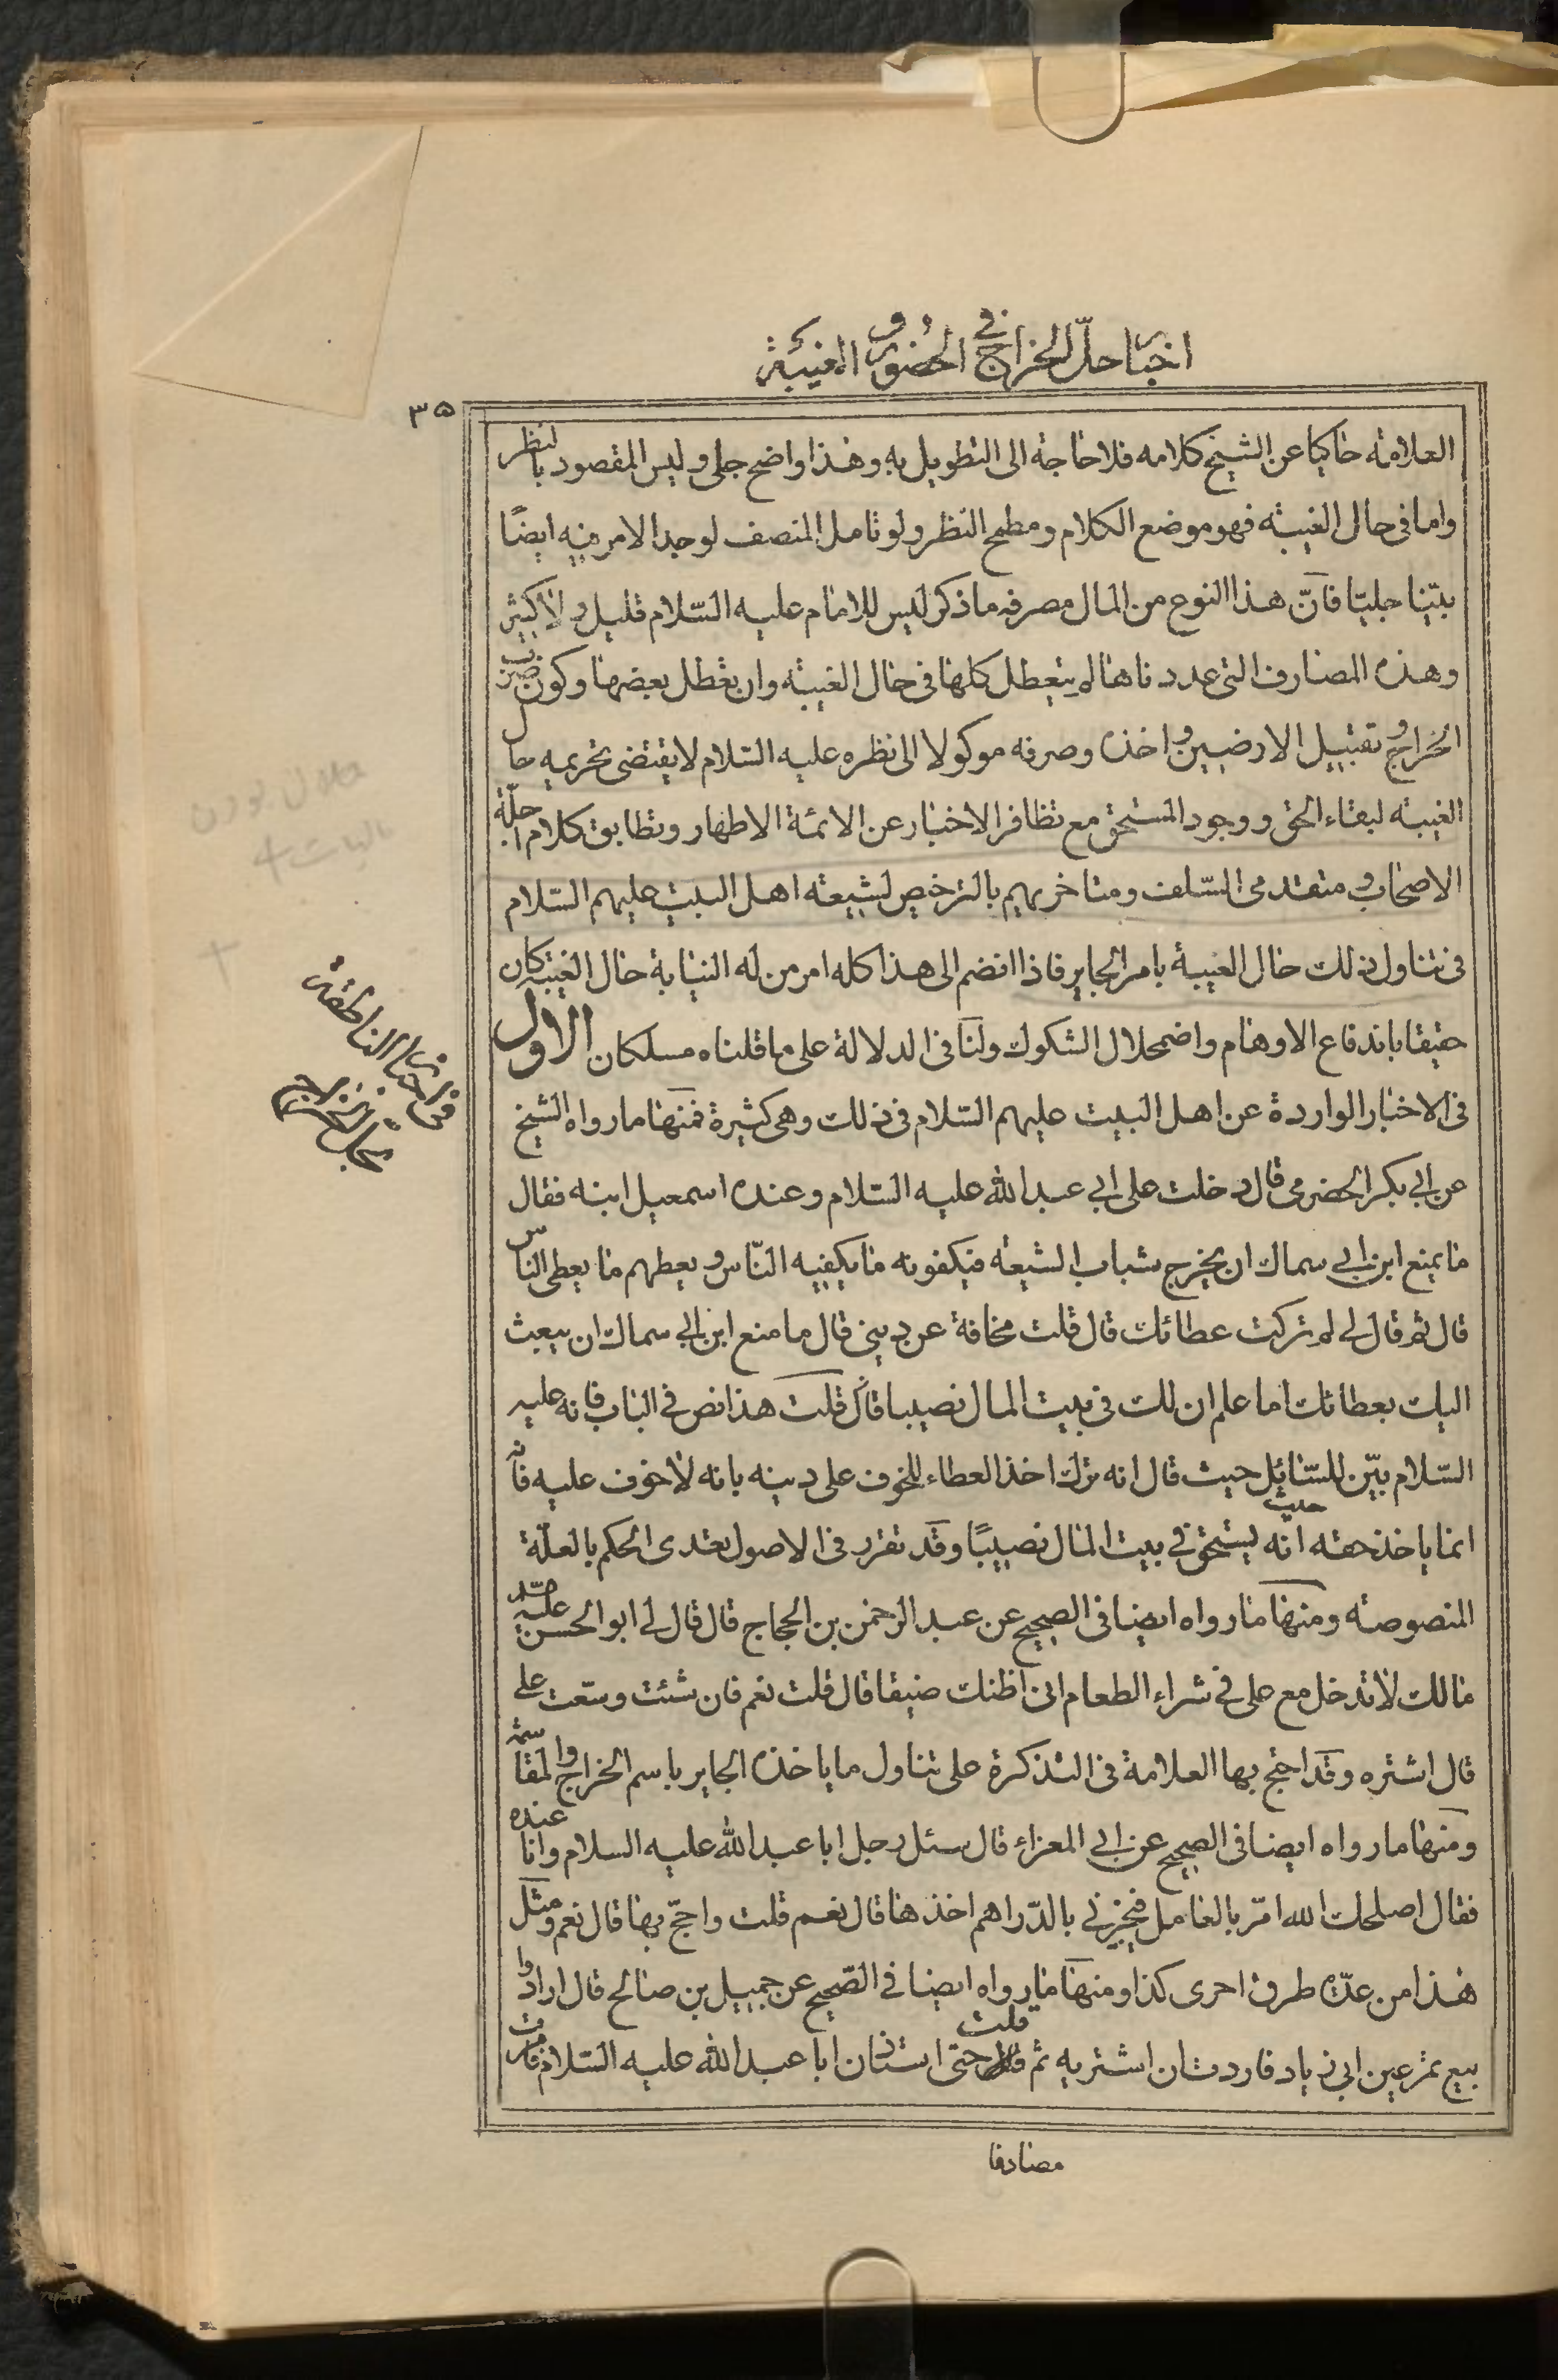 اخبار حلّ الخراج في الحضور و الغيبة
٣٥
العلامة حاكيا عن الشيخ كلامه فلا حاجة الى التطويل به وهذا واضح جلى وليس المقصود بالنظر
واما فى حال الغيبة فهو موضع الكلام ومطمح النظر ولو تامل المنصف لوجد الامر فيه ايضًا
بيّنا جليّا فانّ هذا النوع من المال مصرفه ما ذكر ليس للامام عليه السّلام قليل ولا كثير
وهذه المصارف التى عددناها لم يتعطل كلها فى حال الغيبة وان تعطل بعضها وكون ضرب
الخراج و تقبيل الارضين و اخذه وصرفه موكولا الى نظره عليه السّلام لا يقتضى تحريمه حال
الغيبة لبقاء الحق ووجود المستحق مع تظافر الاخبار عن الائمة الاطهار وتطابق كلام اجلّة
الاصحاب و متقدمى السّلف ومتاخريهم بالترخيص لشيعة اهل البيت عليهم السّلام
فى تناول ذلك حال الغيبة بامر الجاير فاذا انضم الى هذا كله امر من له النيابة حال الغيبة كان
حقيقا باندفاع الاوهام واضمحلال الشكوك ولنا فى الدلالة على ما قلناه مسلكان الاول
فى الاخبار الواردة عن اهل البيت عليهم السّلام فى ذلك وهى كثيرة فمنها ما رواه الشيخ
عن ابى بكر الحضرمى قال دخلت على ابى عبد الله عليه السّلام وعنده اسمعيل ابنه فقال
ما يمنع ابن ابى سماك ان يخرج شباب الشيعة فيكفونه ما يكفيه النّاس و يعطهم ما يعطى الناس
قال ثم قال لى لم تركت عطائك قال قلت مخافة عن دينى قال ما منع ابن ابى سماك ان يبعث
اليك بعطائك اما علم ان لك فى بيت المال نصيبا قال قلت هذا نص فى الباب فانه عليه
السّلام بيّن للسّائل حيث قال انه ترك اخذ العطاء للخوف على دينه بانه لا خوف عليه فانّه
انما ياخذ حقه حيث انه يستحق فى بيت المال نصيبًا وقد تقرر فى الاصول تعدى الحكم بالعلّة
المنصوصة ومنها ما رواه ايضا فى الصحيح عن عبد الرحمن بن الحجاج قال قال لى ابو الحسن عليه
مالك لا تدخل مع على فى شراء الطعام انى اظنك ضيقا قال قلت نعم فان شئت وسّعت على
قال اشتره وقد احتج بها العلامة فى التذكرة على تناول ما ياخذه الجاير باسم الخراج و المقاسمة
ومنها ما رواه ايضا فى الصحيح عن ابى المعزاء قال سئل رجل ابا عبد الله عليه السلام وانا عنده
فقال اصلحك الله امرّ بالعامل فيجيزنى بالدّراهم اخذها قال نعم قلت واحجّ بها قال نعم ومثل
هذا من عدّة طرق اخرى كذا ومنها ما رواه ايضا فى الصّحيح عن جميل بن صالح قال ارادوا
بيع تمر عين ابى زياد فاردت ان اشتريه ثم قلت حتى استاذن ابا عبد الله عليه السّلام فامرت
فى الاخبار الناطقة
بحل الخراج
مصادفا